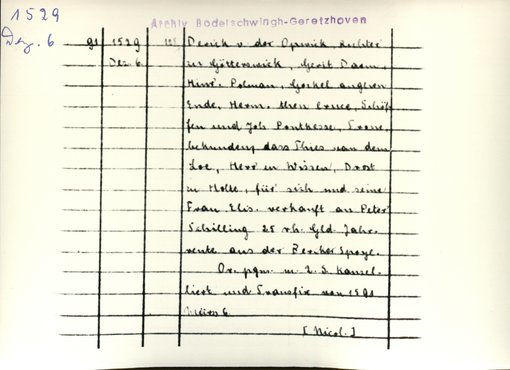 1529
Dez. 6
Archiv Bodelschwingh-Geretzhoven
91 1529 Derick v. der Opwick, Richter
Dez. 6. zu Götterswick, Gerit Daem,
Hinr. Polman, Goekel anghen
Ende, Herm. then Schöf-
fen und Joh. Fronе,
bekunden, dass Thies van dem
Loe, Herr zu Wissen, Drost
zu Holte, für sich und seine
Frau Elis. verkauft an Peter
Schilling 25 rh. Gld. Jahr-
rente aus der
Or. pgm. m. 2 S. kansel-
liert und Transfix von 1591
März 6.
[Nicol.]